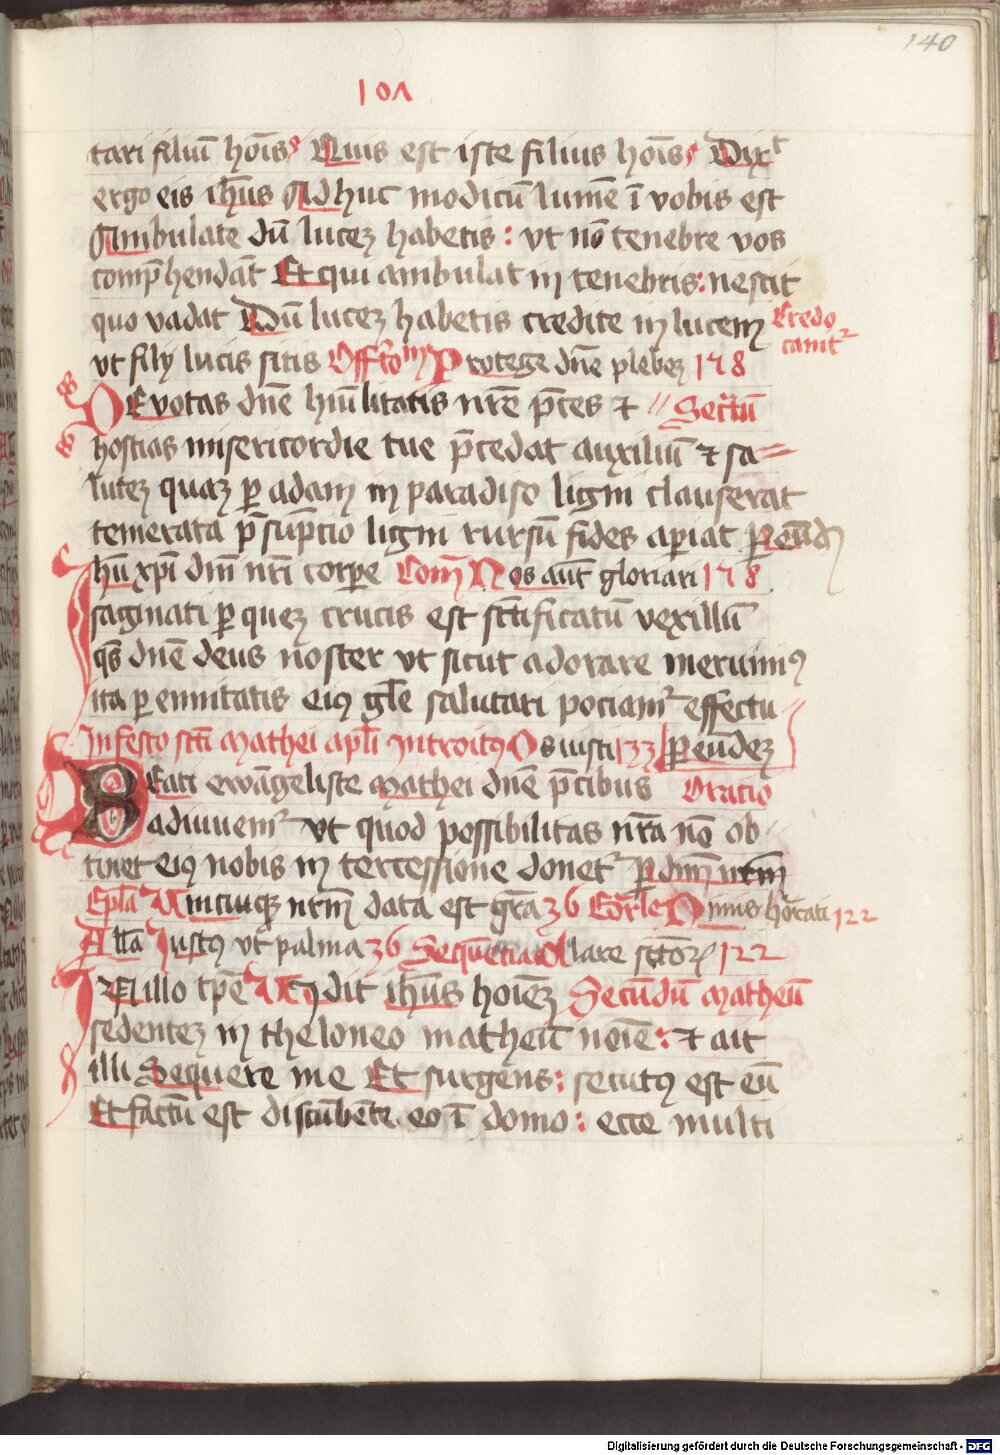 140
107
tari filiū hoīs Quis est iste filius hoīs Dixᵗ
ergo eis ih̄us Adhuc modicū lumē ī vobis est
Ambulate dū lucez habetis : vt nō tenebre vos
comp̄hendāt Et qui ambulat in tenebris : nescit
quo vadat Dū lucez habetis credite in lucem Credo
vt filij lucis sitis Offr̄oᵐ Protege dn̄e plebez 178 canitᵘʳ
DEvotas dn̄e hūilitatis nr̄e p̄ces ⁊ // Secr̄tū
hostias misericordie tue p̄cedat auxiliū ⁊ sa=
lutez quaz p̲ adam in paradiso ligni clauserat
temerata p̄sūptio ligni rursū fides ap̲iat P̲ eūdē
Ihū xp̄i dn̄i nr̄i corp̲e Com̄ Nos aūt gloriari 178
saginati p̲ quez crucis est sc̄tificatū vexillū
qs̄ dn̄e deus noster vt sicut adorare meruimꝰ
ita p̲ennitatis eiꝰ gl̄e salutari pociamʳ effectu
In festo sc̄ti Mathei apl̄i Introitꝰ Os iusti 133 P̲ eundez
BEati ewāgeliste mathei dn̄e p̄cibus Oratio
adiuuemʳ vt quod possibilitas nr̄a nō ob
tinet eiꝰ nobis in tercessione donetʳ p̲ dnm̄ nr̄m
Epl̄a Vnicuiqꝫ nr̄m data est gr̄a 36 Gdr̄le Dnius 122
All̄a Iustꝰ vt palma 36 Sequētia Clare sc̄torꝝ 122
IN illo tp̄e Vidit ih̄us hoīez Secundū Matheū
sedentez in theloneo matheū noīe : ⁊ ait
illi Sequere me Et surgens : secutꝰ est eū
Et factū est discūbēte eo ī domo : ecce multi
Digitalisierung gefördert durch die Deutsche Forschungsgemeinschaft - DFG